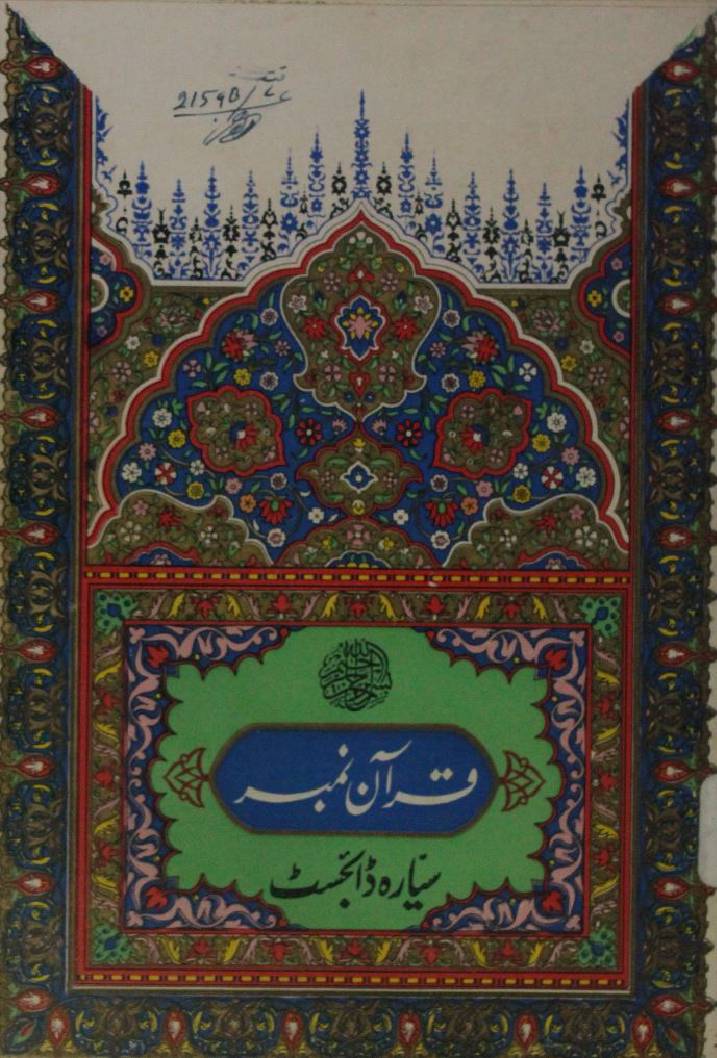 2159B
بسم الله الرحمن الرحيم
قرآن نمبر
سیّارہ ڈائجسٹ